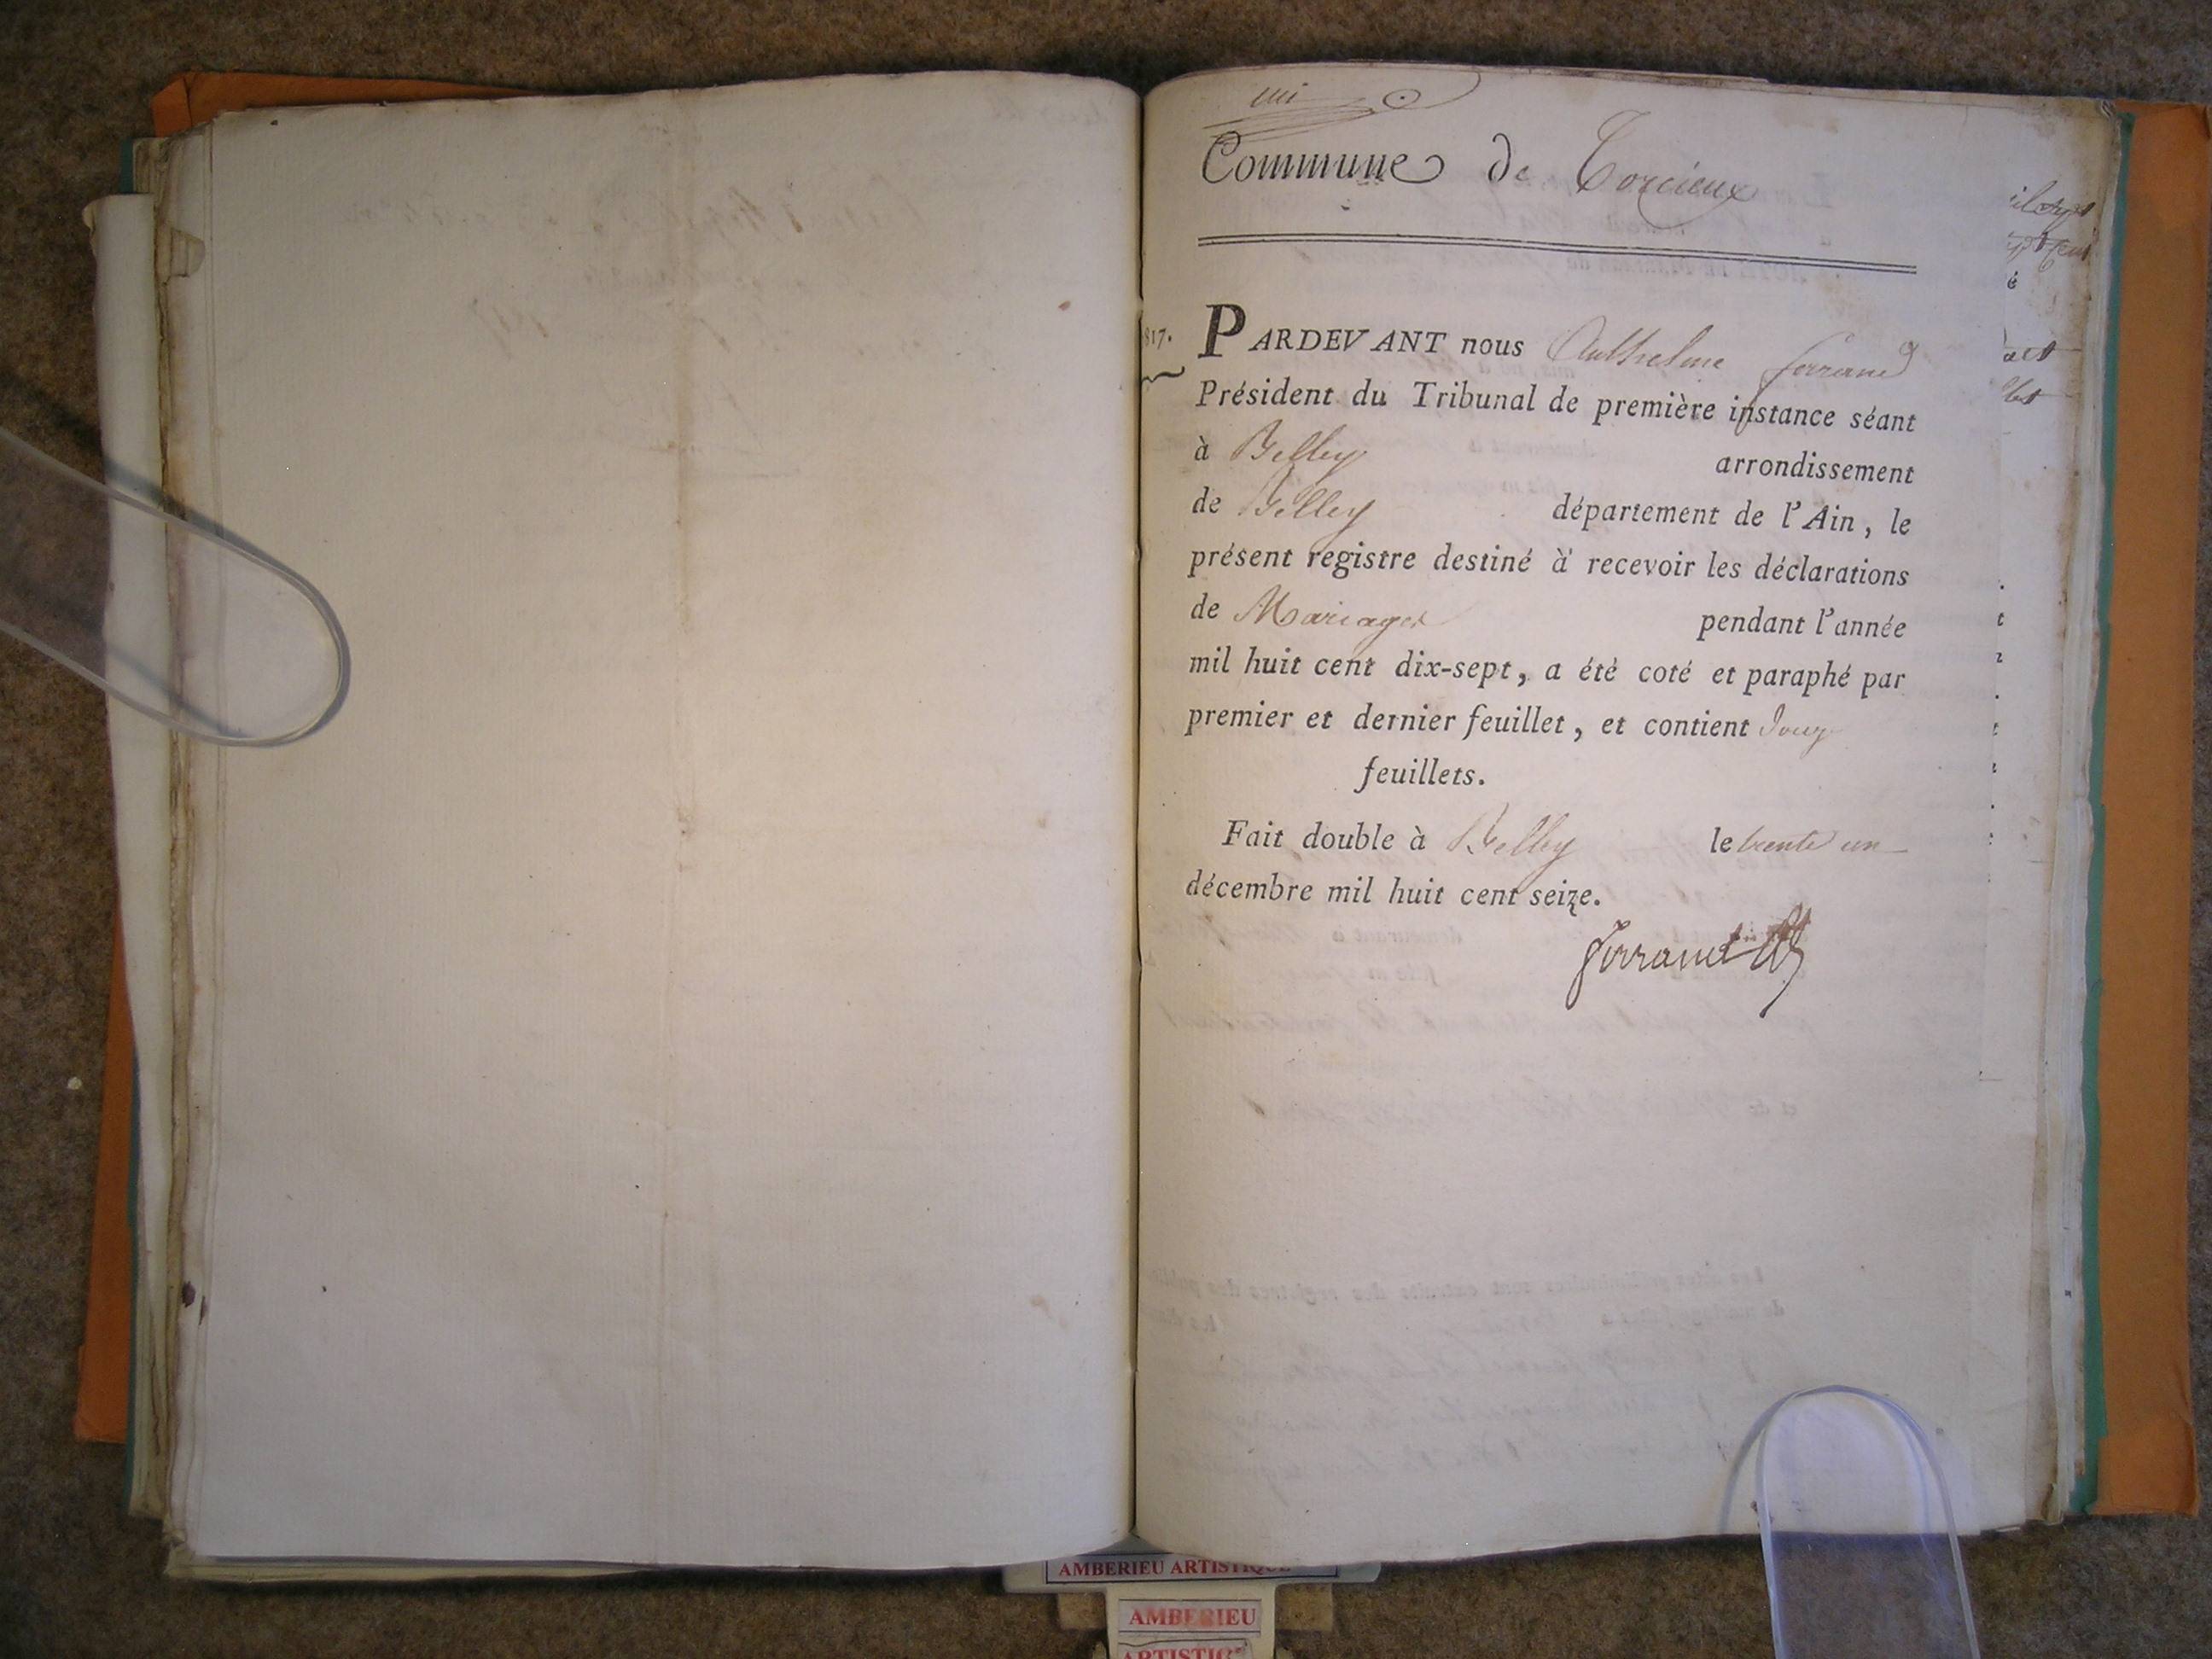 Commune de Torcieux
817.
PARDEVANT nous Anthelme ferrand
Président du Tribunal de première instance séant
à Belley arrondissement
de Belley département de l'Ain, le
présent registre destiné à recevoir les déclarations
de Mariages pendant l'année
mil huit cent dix-sept, a été coté et paraphé par
premier et dernier feuillet, et contient douze
feuillets.
Fait double à Belley le trente un
décembre mil huit cent seize.
ferrand
AMBERIEU ARTISTIQUE
AMBERIEU
ARTISTIQ